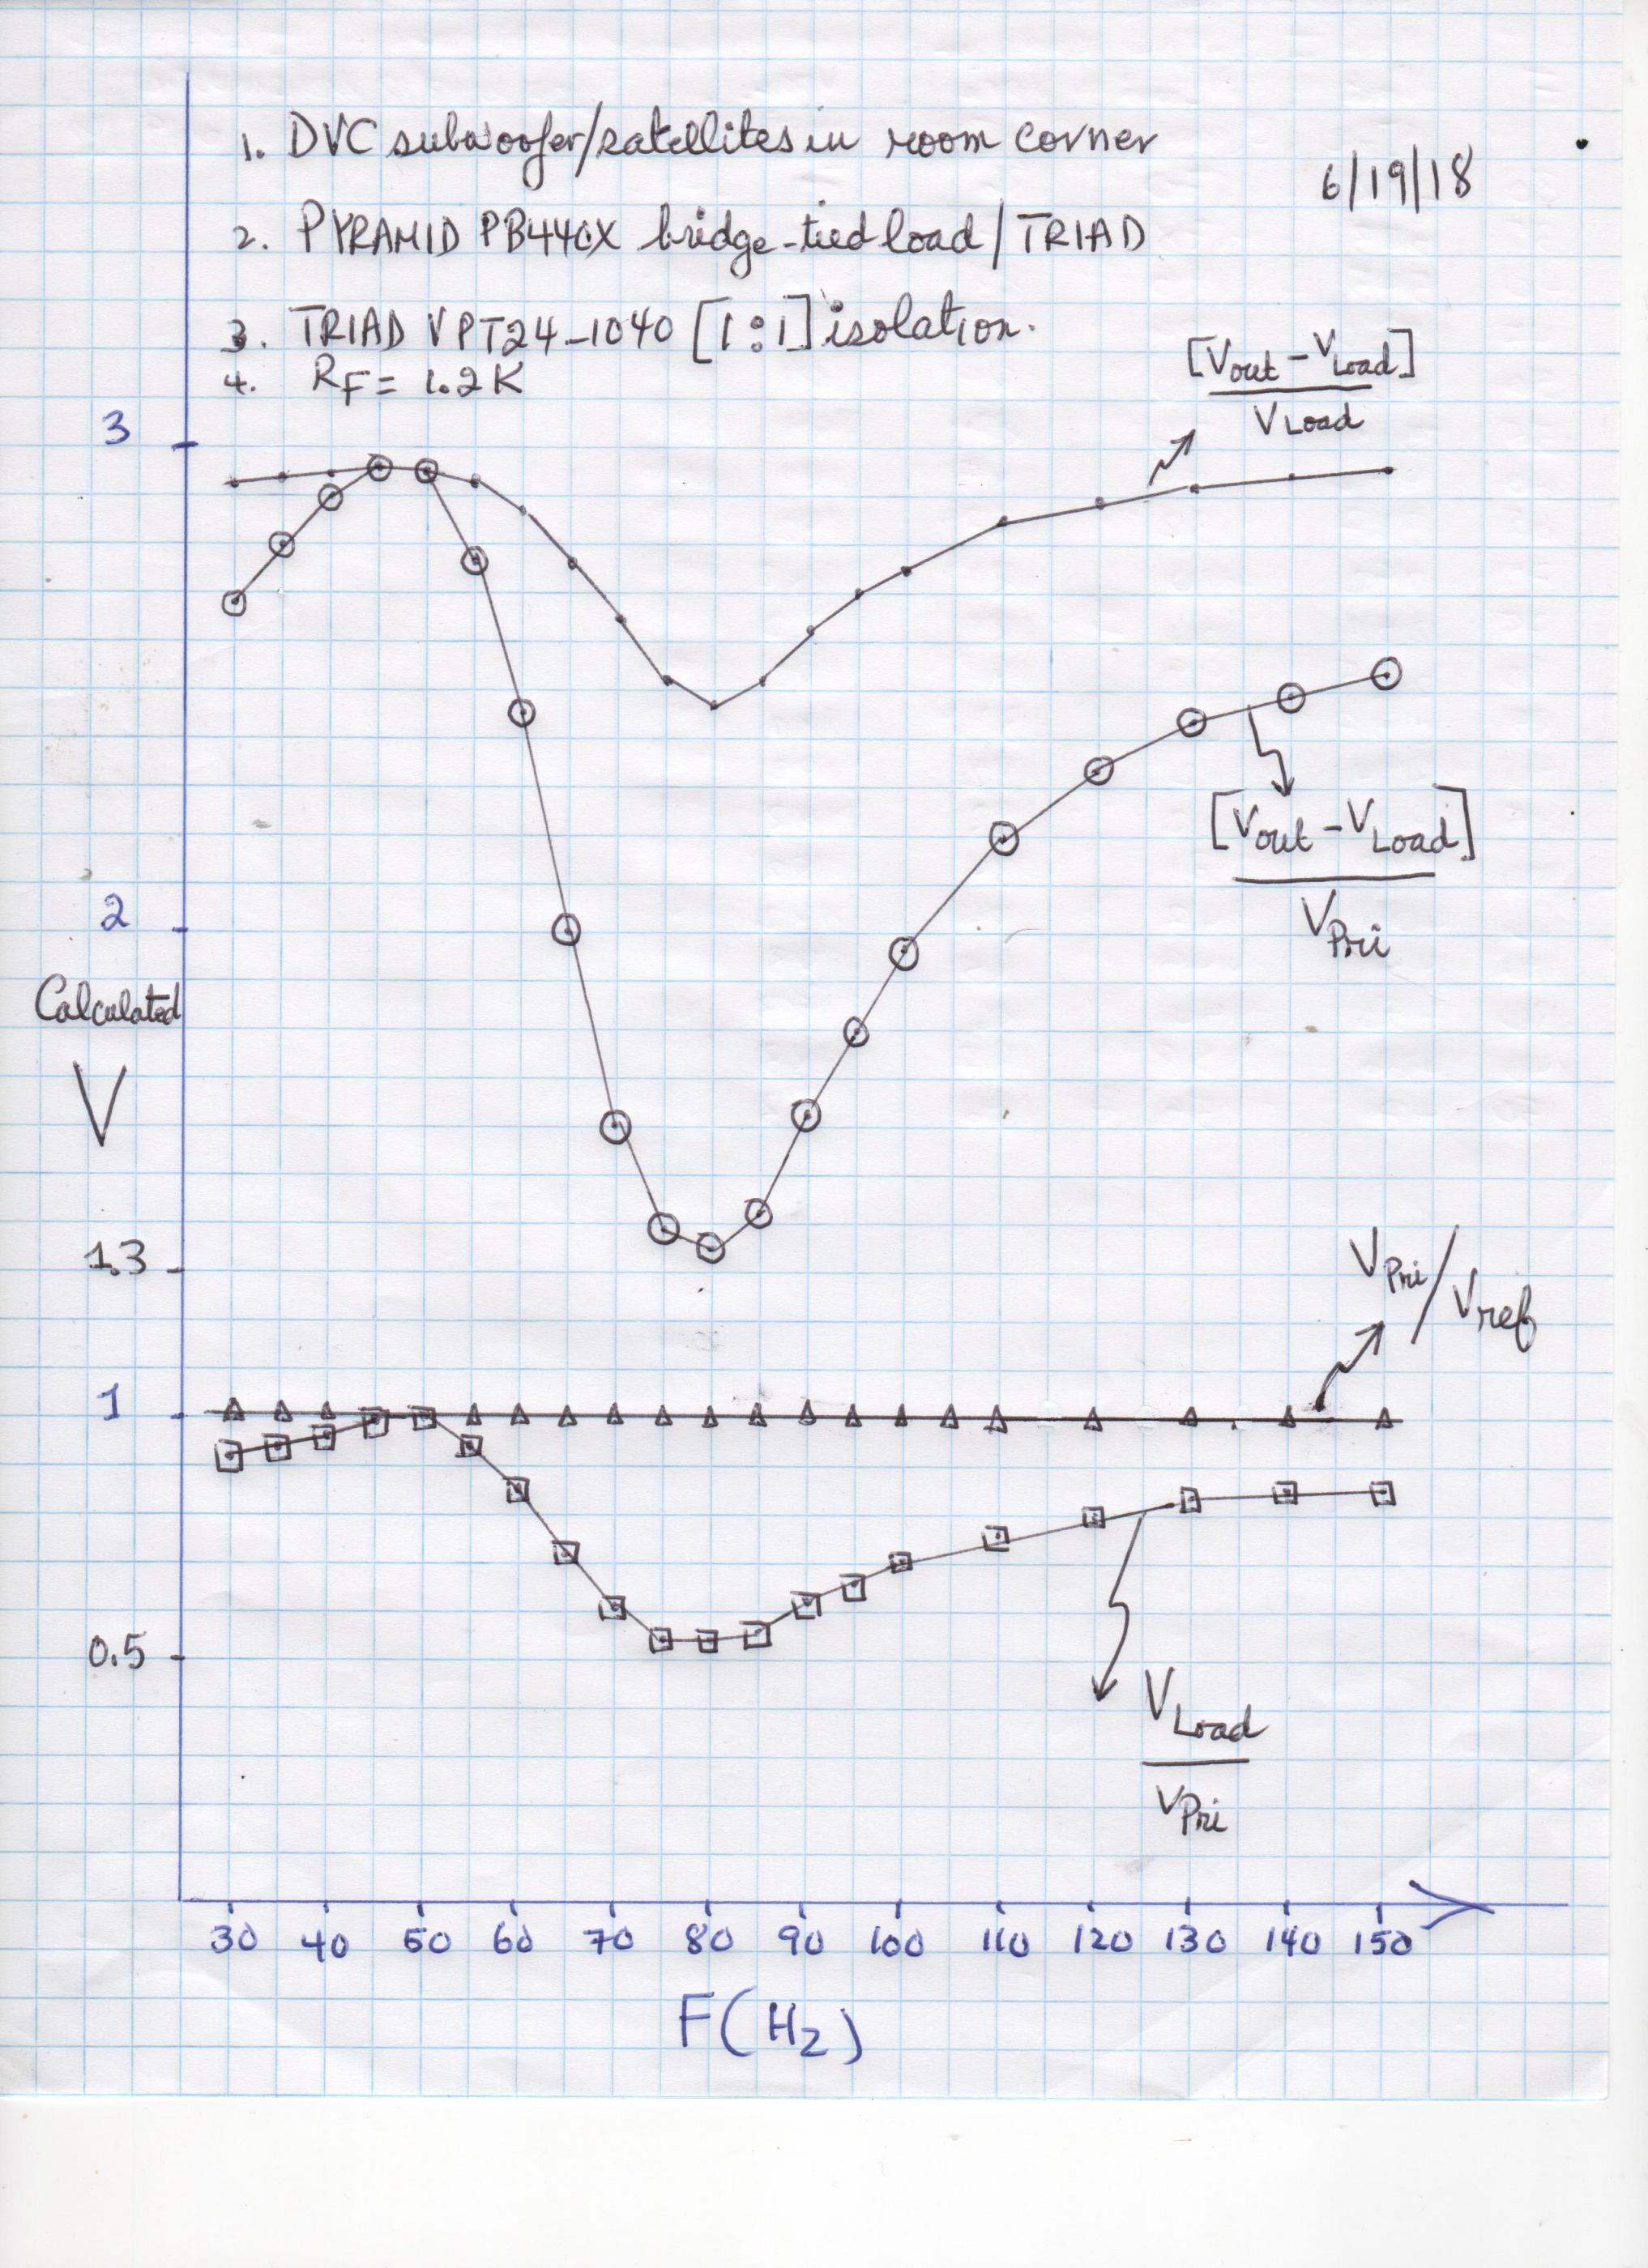 1. DVC subwoofer/satellites in room corner
6/19/18
2. PYRAMID PB440X bridge-tied load / TRIAD
3. TRIAD VPT24-1040 [1:1] isolation.
4. RF = 1.2K
[Vout - VLoad]
VLoad
3
[Vout - VLoad]
VPri
2
Calculated
V
1.3
VPri/Vref
1
0.5
VLoad
VPri
30 40 50 60 70 80 90 100 110 120 130 140 150
F(Hz)